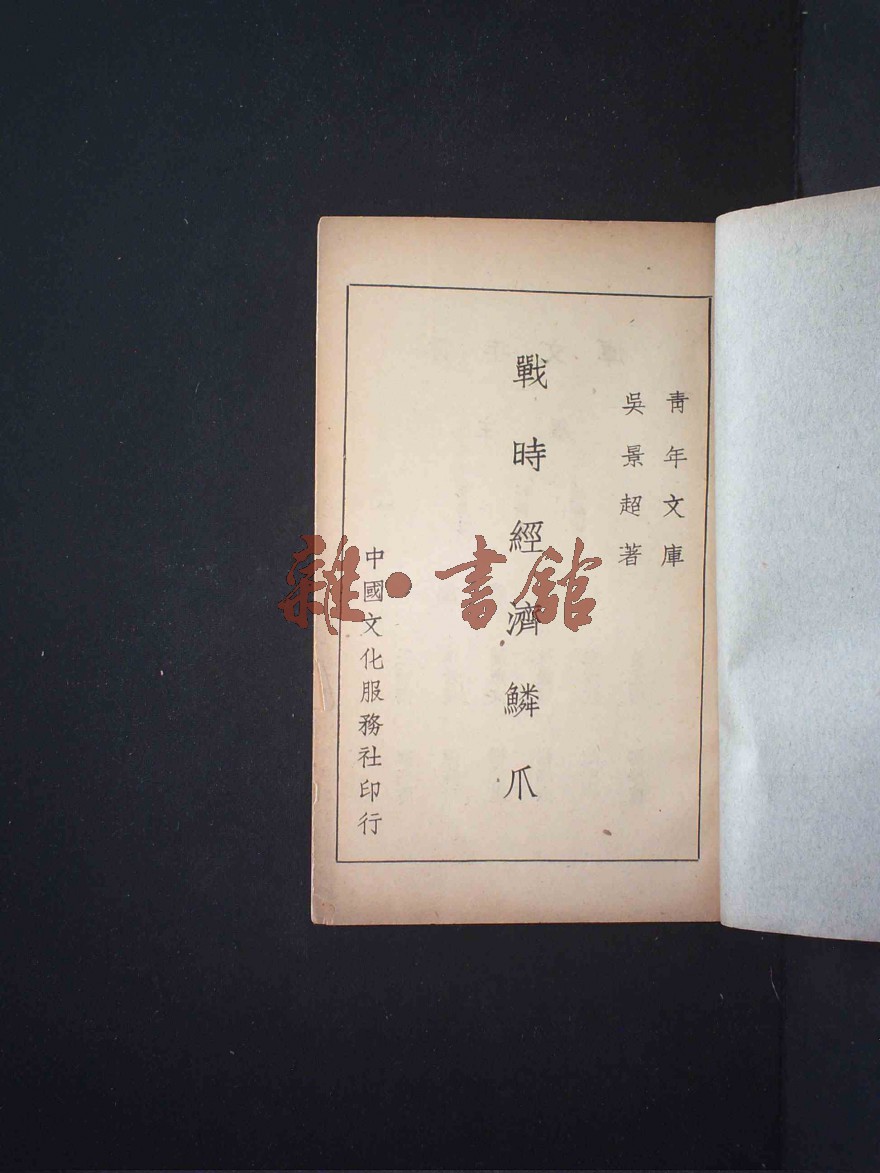 青年文庫
吳景超著
戰時經濟鱗爪
中國文化服務社印行
雜·書館